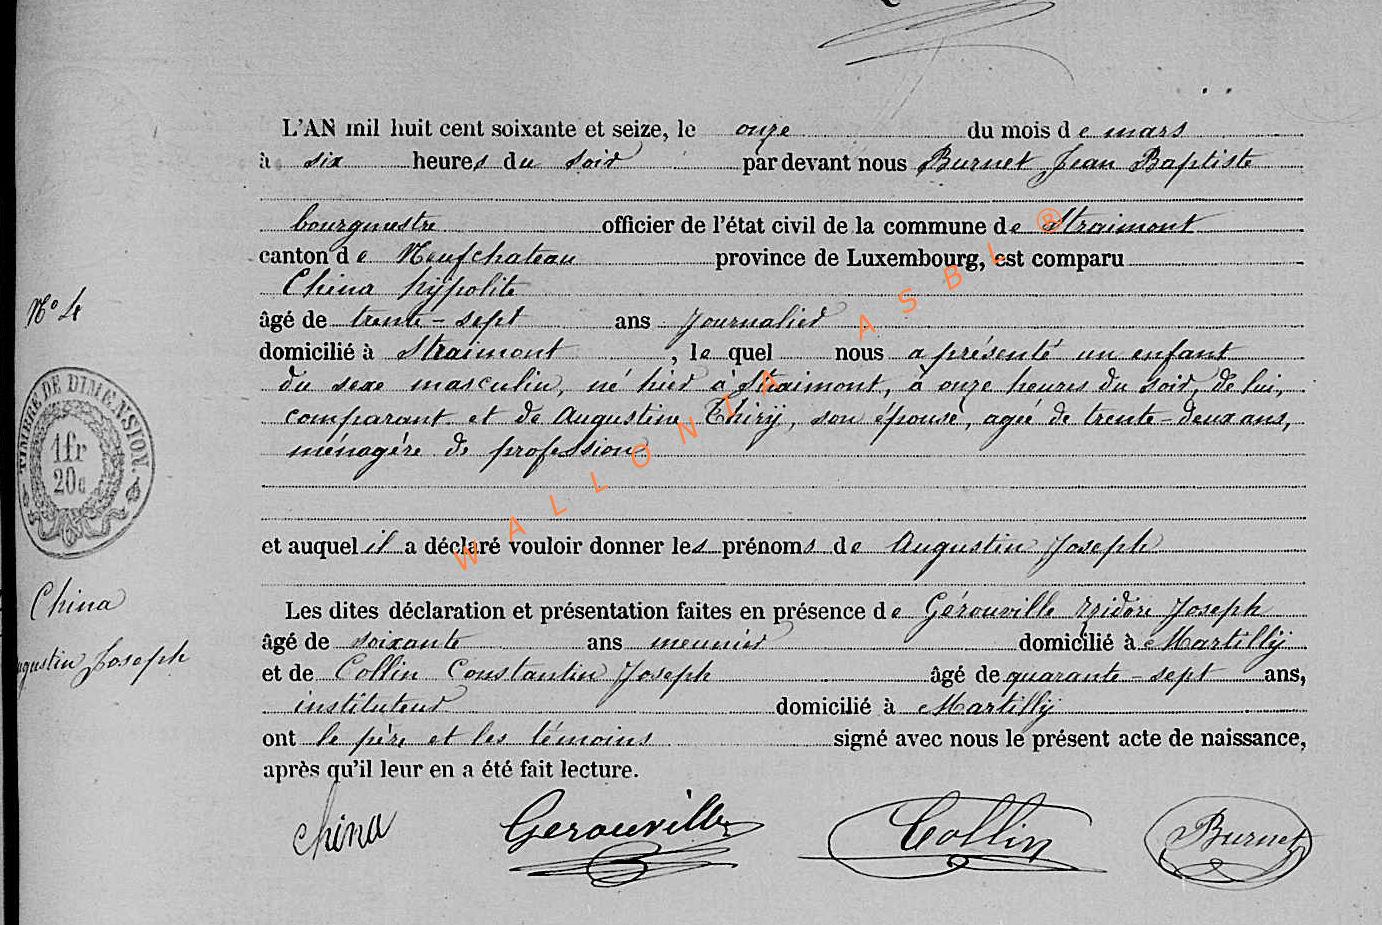 L'AN mil huit cent soixante et seize, le onze du mois de mars
à six heures du soir par devant nous Burnet Jean Baptiste
bourgmestre officier de l'état civil de la commune de Straimont
canton de Neufchateau province de Luxembourg, est comparu
China hÿpolite
N° 4
âgé de trente-sept ans Journalier
domicilié à Straimont, le quel nous a présenté un enfant
du sexe masculin, né hier à Straimont, à onze heures du soir, de lui,
comparant et de Augustine Thirÿ, son épouse, agée de trente-deux ans,
ménagère de profession
TIMBRE DE DIMENSION.
1fr
20c
et auquel il a déclaré vouloir donner les prénoms de Augustin Joseph
China
Augustin Joseph
Les dites déclaration et présentation faites en présence de Gérouville Izidore Joseph
âgé de soixante ans meunier domicilié à Martillÿ
et de Collin Constantin Joseph âgé de quarante-sept ans,
instituteur domicilié à Martillÿ
ont le père et les témoins signé avec nous le présent acte de naissance,
après qu'il leur en a été fait lecture.
china Gerouville Collin Burnet
WALLONIA ASBL ®